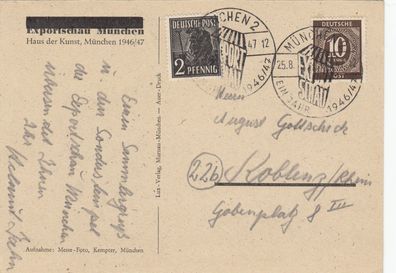 Exportschau München
Haus der Kunst, München 1946/47
Einen Sammlergruß
in den Sonderstempel
der Exportschau München
übersendet Ihnen
Ihr
Helmut
Aufnahme: Messe-Foto, Kempter, München
Lux-Verlag, Murnau-München — Auer-Druck
DEUTSCHE POST
2 PFENNIG
MÜNCHEN 2
47 12
EXPORT
SCHAU
1946/47
DEUTSCHE
10
POST
MÜNCHEN
25.8.
EIN JAHR
EXPORT
SCHAU
1946/47
Herrn
August Gottschick
(22b) Koblenz/Rhein
Goebenplatz 8 III